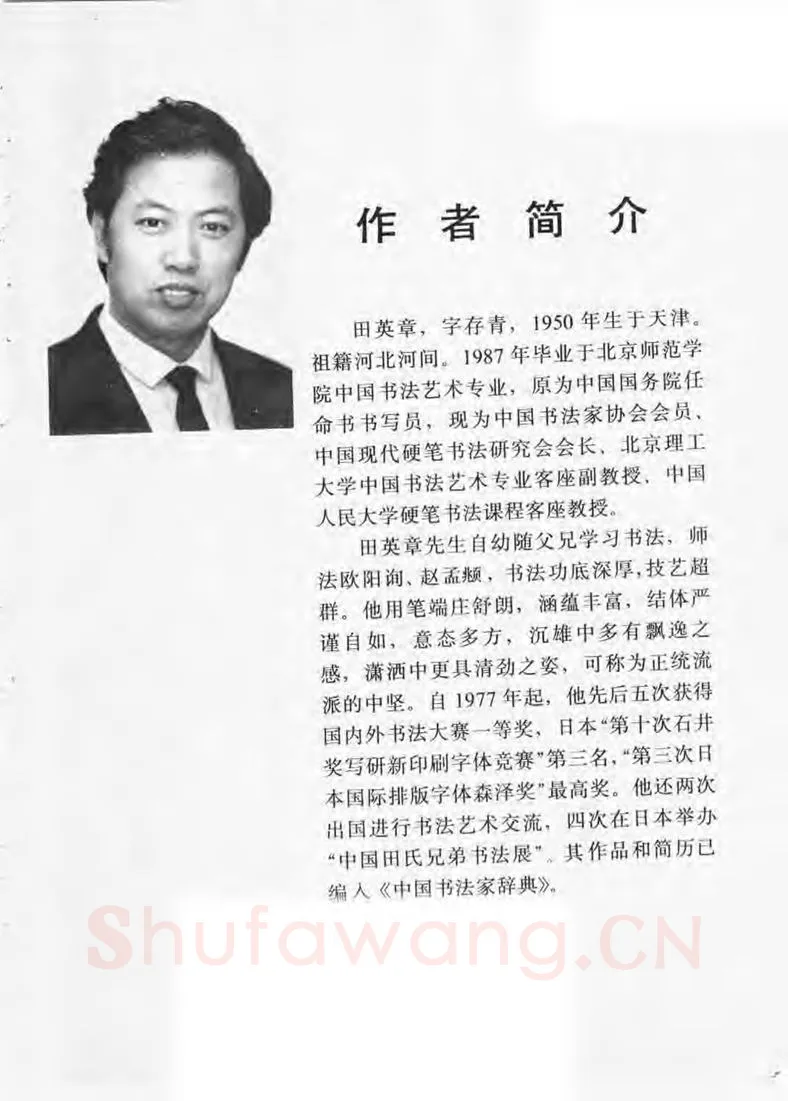 作者简介
田英章，字存青，1950 年生于天津。
祖籍河北河间。1987 年毕业于北京师范学
院中国书法艺术专业，原为中国国务院任
命书书写员，现为中国书法家协会会员、
中国现代硬笔书法研究会会长、北京理工
大学中国书法艺术专业客座副教授、中国
人民大学硬笔书法课程客座教授。
田英章先生自幼随父兄学习书法，师
法欧阳询、赵孟頫，书法功底深厚，技艺超
群。他用笔端庄舒朗，涵蕴丰富，结体严
谨自如，意态多方，沉雄中多有飘逸之
感，潇洒中更具清劲之姿，可称为正统流
派的中坚。自 1977 年起，他先后五次获得
国内外书法大赛一等奖，日本“第十次石井
奖写研新印刷字体竞赛”第三名，“第三次日
本国际排版字体森泽奖”最高奖。他还两次
出国进行书法艺术交流，四次在日本举办
“中国田氏兄弟书法展”。其作品和简历已
编入《中国书法家辞典》。
Shufawang.CN